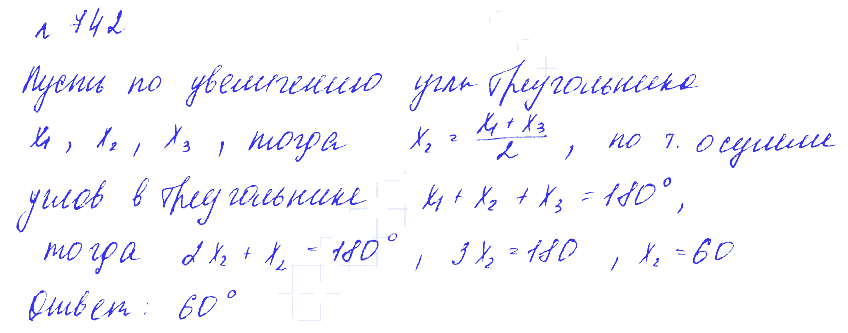 л 742
Пусть по увеличению углы треугольника
x₁, x₂, x₃, тогда x₂ = (x₁ + x₃)/2, по т. о сумме
углов в треугольнике x₁ + x₂ + x₃ = 180°,
тогда 2x₂ + x₂ = 180°, 3x₂ = 180, x₂ = 60
Ответ: 60°